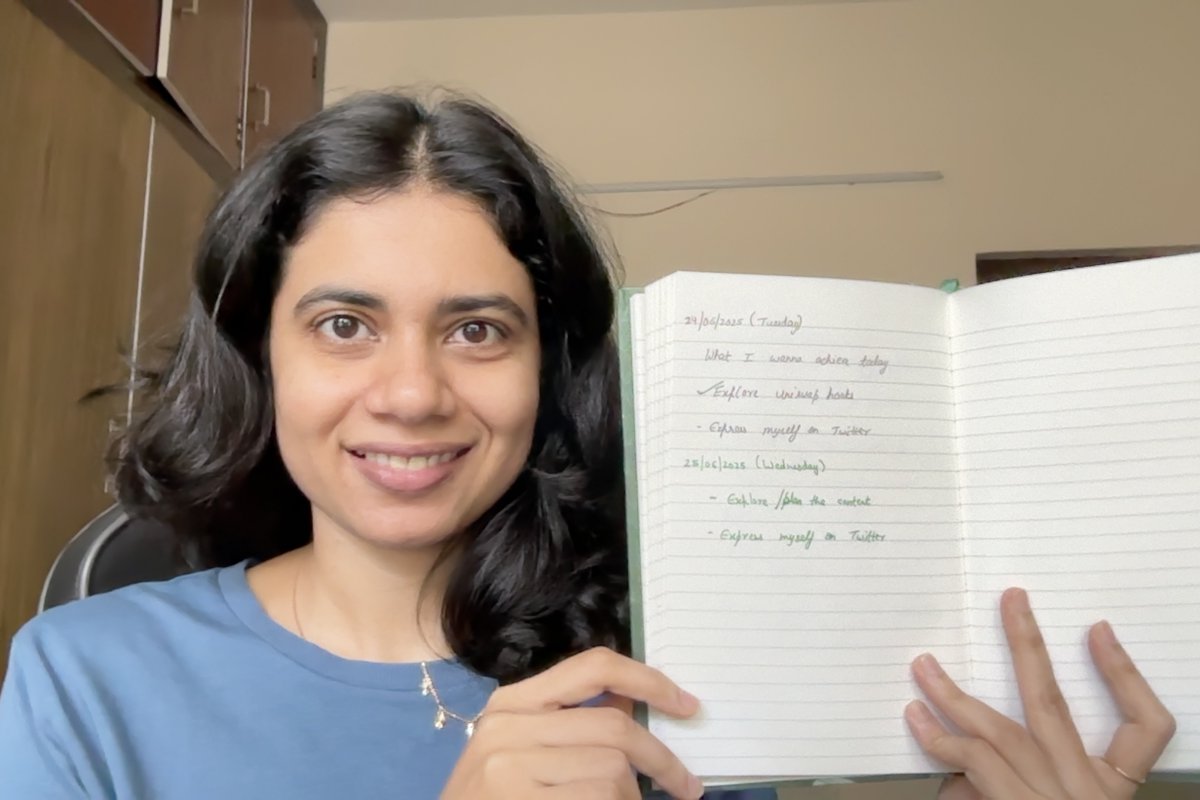 24/06/2025 (Tuesday)
What I wanna achiev today
✓Explore uniswap hooks
- Express myself on Twitter
25/06/2025 (Wednesday)
- Explore /plan the content
- Express myself on Twitter